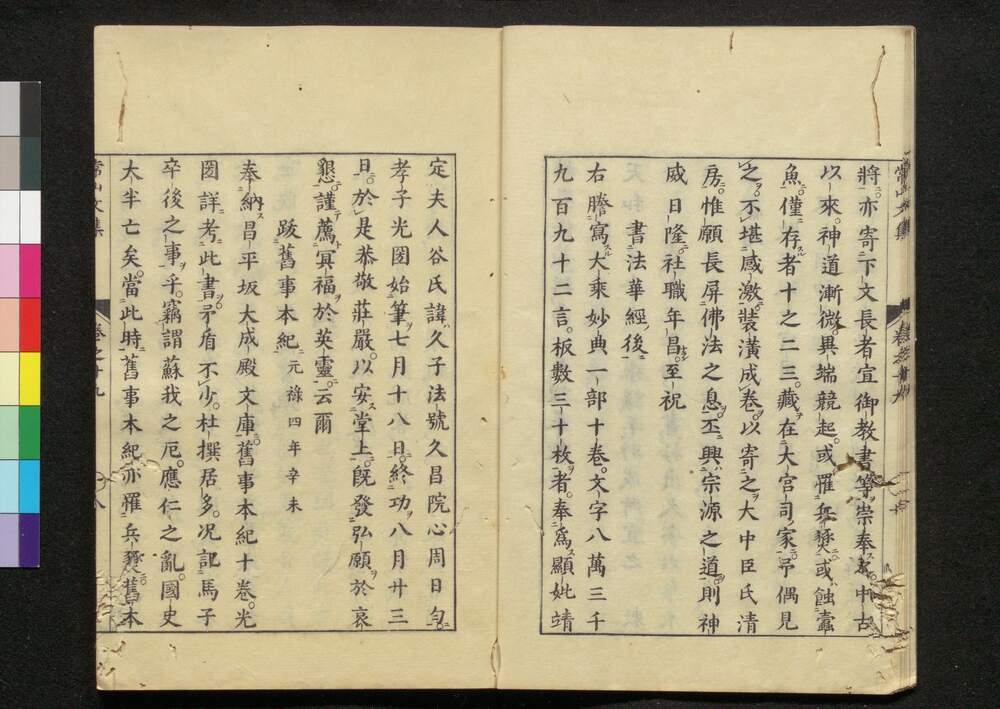 將亦寄下文長者宣御教書等崇奉
以來神道漸微異端競起或罹兵燹或蝕蠹
魚僅存者十之二三藏在大宮司家予偶見
之不堪感激裝潢成卷以寄之大中臣氏清
房惟願長屏佛法之息丕興宗源之道則神
威日隆社職年昌至祝
書法華經後
右謄寫大乘妙典一部十卷文字八萬三千
九百九十二言板數三十枚者奉爲顯妣靖
定夫人谷氏諱久子法號久昌院心周日旬
孝子光圀始筆七月十八日終功八月廿三
日於是恭敬莊嚴以安堂上旣發弘願於哀
懇謹薦冥福於英靈云爾
跋舊事本紀 元祿四年辛未
奉納昌平坂大成殿文庫舊事本紀十卷光
圀詳考此書矛盾不少杜撰居多况記馬子
卒後之事乎竊謂蘇我之厄應仁之亂國史
大半亡矣當此時舊事本紀亦罹兵燹舊本
常山文集
卷之十九